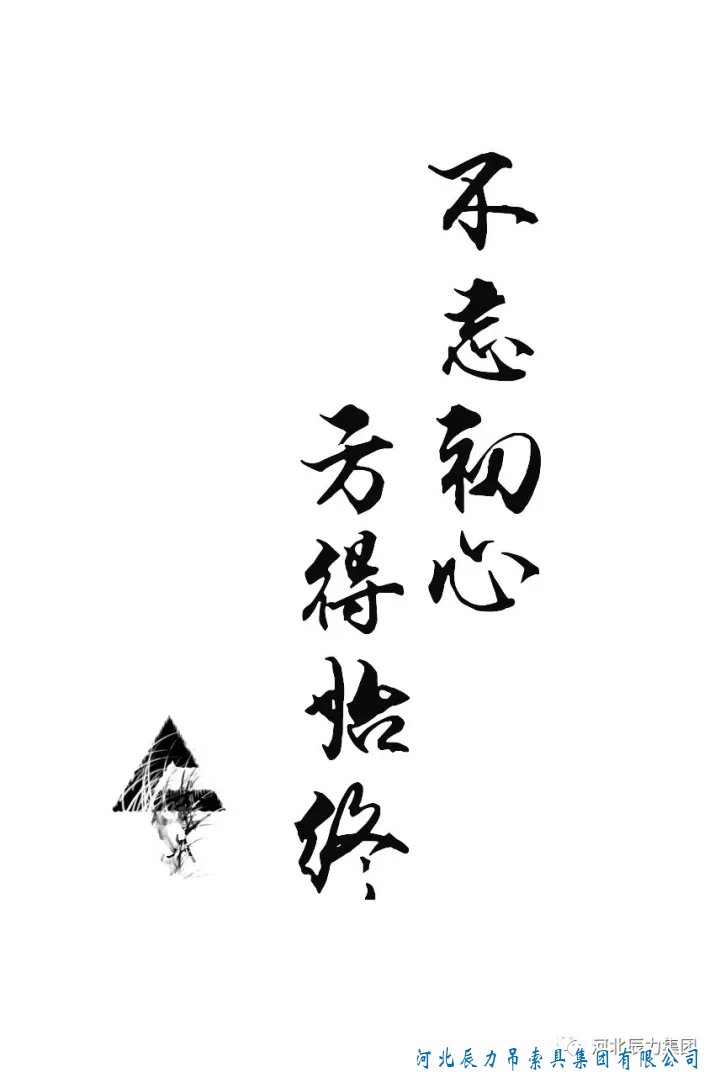 不忘初心
方得始终
河北辰力集团
河北辰力吊索具集团有限公司